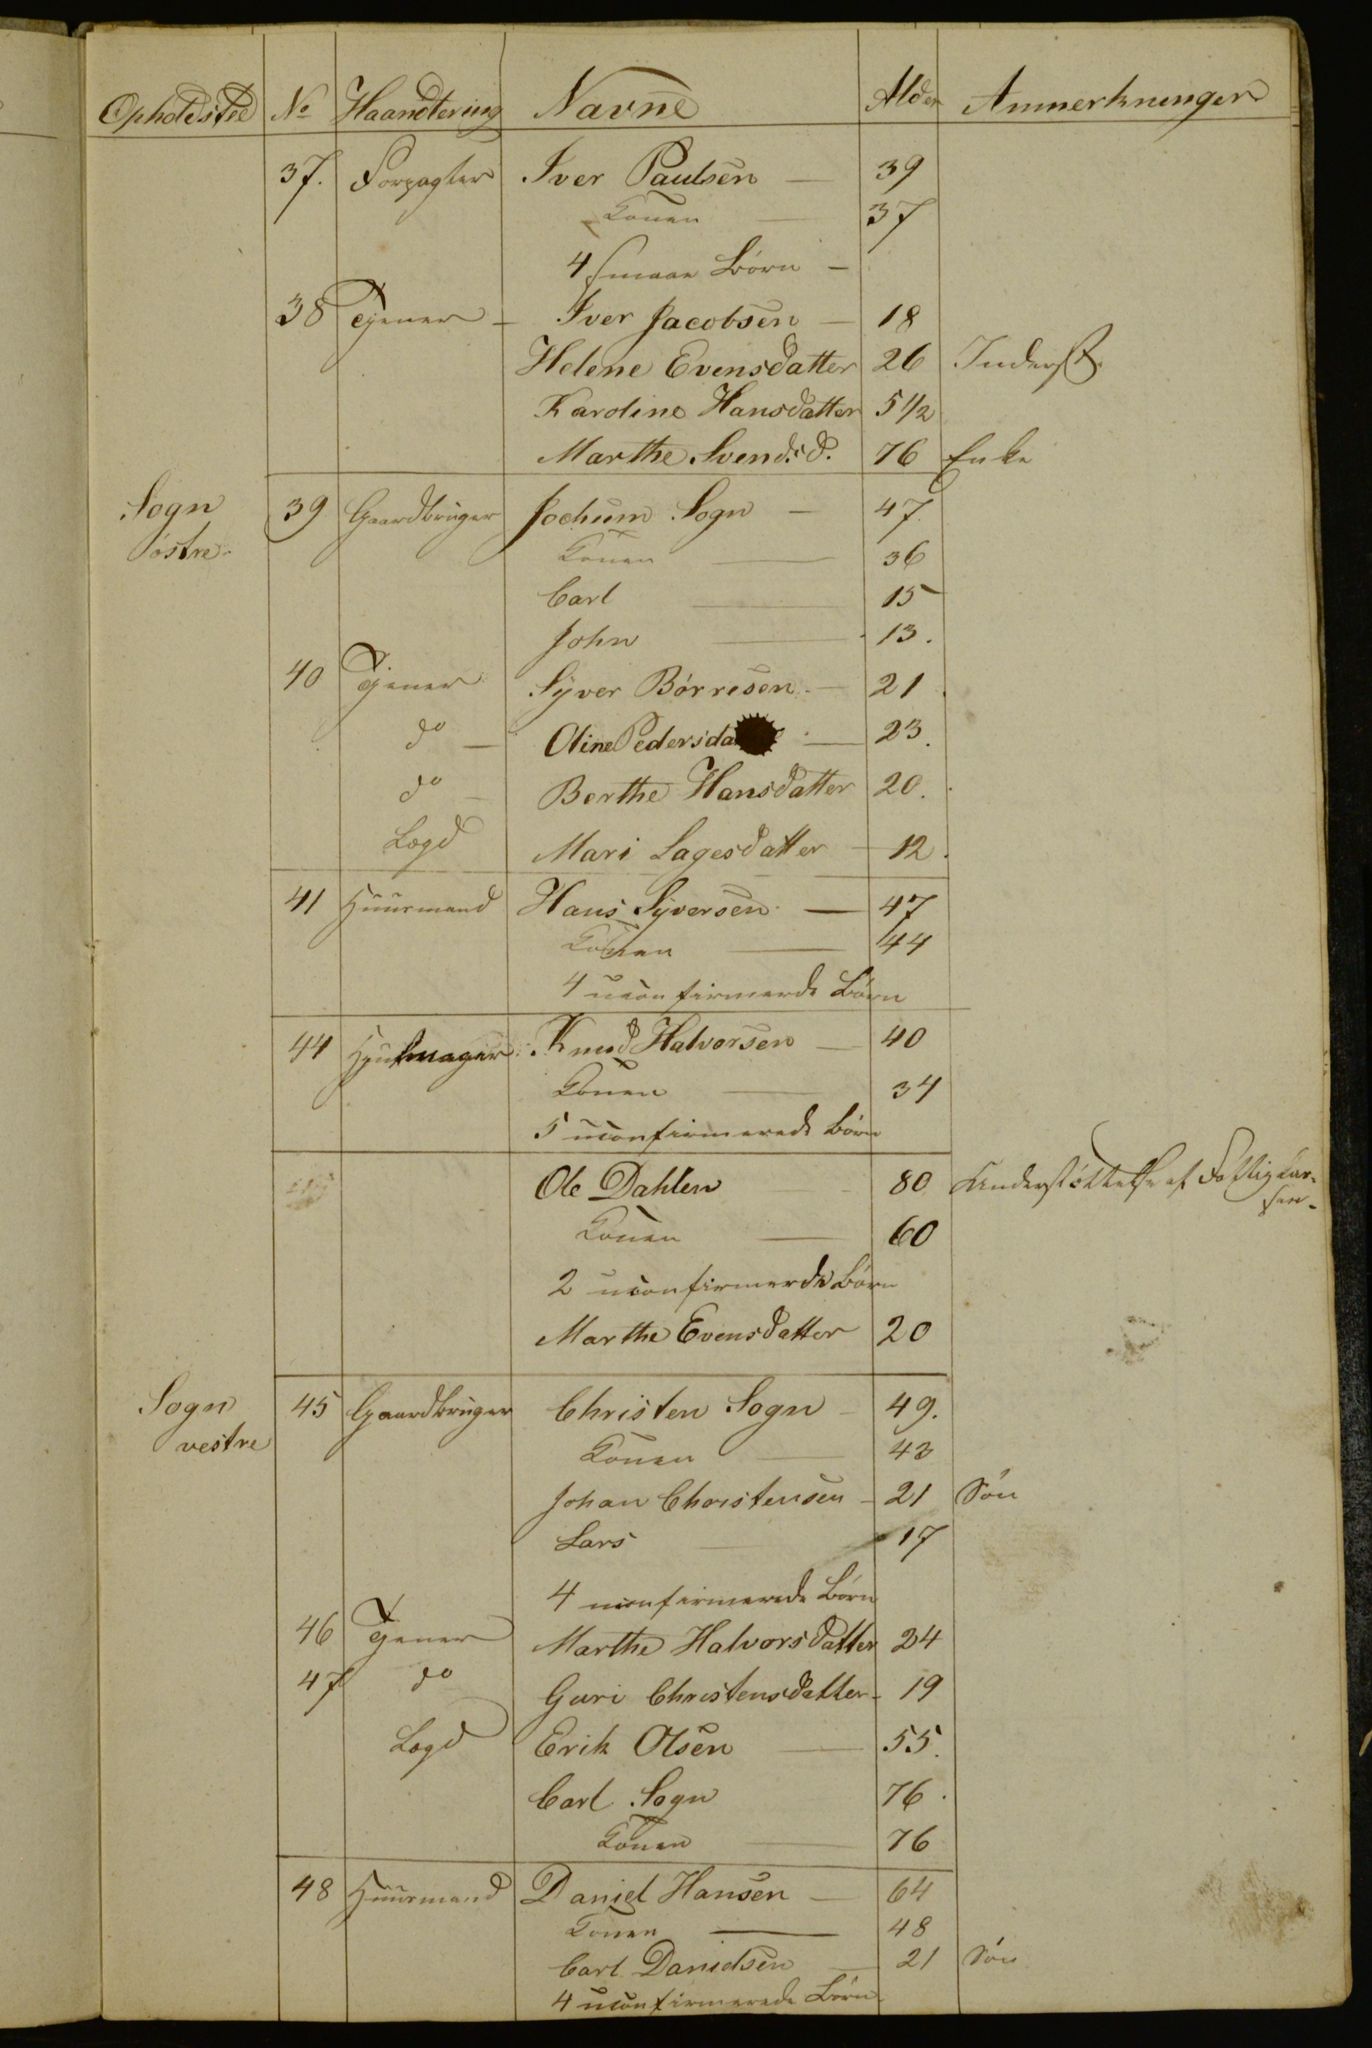 Opholdsted No Haandtering Navne Alder Anmerkninger
37. Forpagter Iver Paulsen — 39
Konen — 37
4 smaae Børn —
38 Tjener — Iver Jacobsen — 18
Helene Evensdatter 26 Inderst.
Karoline Hansdatter 5 1/2
Marthe Svends.d. 76 Enke
Sogn 39 Gaardbruger Jochum Sogn — 47
østre. Konen — 36
Carl — 15
John — 13.
40 Tjener Syver Børresen — 21
do — Oline Pedersda — 23.
do — Berthe Hansdatter 20.
Lægd Mari Lagesdatter — 12.
41 Huusmand Hans Syversen — 47
Konen — 44
4 uconfirmerde Børn
44 Hjulmager Knud Halvorsen — 40
Konen — 34
5 uconfirmerede Børn
Ole Dahlen 80 Understøttelse af Fattigkas-
sen.
Konen — 60
2 uconfirmerde Børn
Marthe Evensdatter 20
Sogn 45 Gaardbruger Christen Sogn — 49.
vestre Konen — 43
Johan Christensen — 21 Søn
Lars — 17
4 uconfirmerede Børn
46 Tjener Marthe Halvorsdatter 24
47 do Guri Christensdatter — 19
Lægd Erik Olsen — 55.
Carl Sogn 76.
Konen — 76
48 Huusmand Daniel Hansen — 64
Konen — 48
Carl Danielsen — 21 Søn
4 uconfirmerede Børn